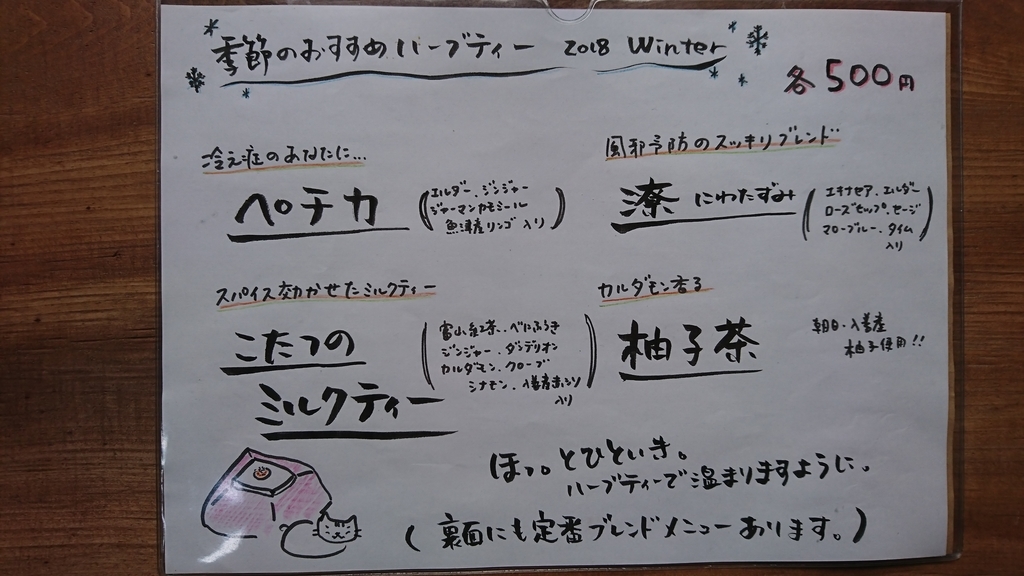 季節のおすすめハーブティー 2018 Winter
各500円
冷え症のあなたに…
ペチカ
(エルダー、ジンジャー
ジャーマンカモミール
魚津産リンゴ入り)
風邪予防のスッキリブレンド
潦 にわたずみ
(エキナセア、エルダー
ローズヒップ、セージ
マローブルー、タイム
入り)
スパイス効かせたミルクティー
こたつの
ミルクティー
(富山紅茶、べにふうき
ジンジャー、ダンデリオン
カルダモン、クローブ
シナモン、入善産
入り)
カルダモン香る
柚子茶
朝日・入善産
柚子使用!!
ほっ。とひといき。
ハーブティーで温まりますように。
(裏面にも定番ブレンドメニューあります。)